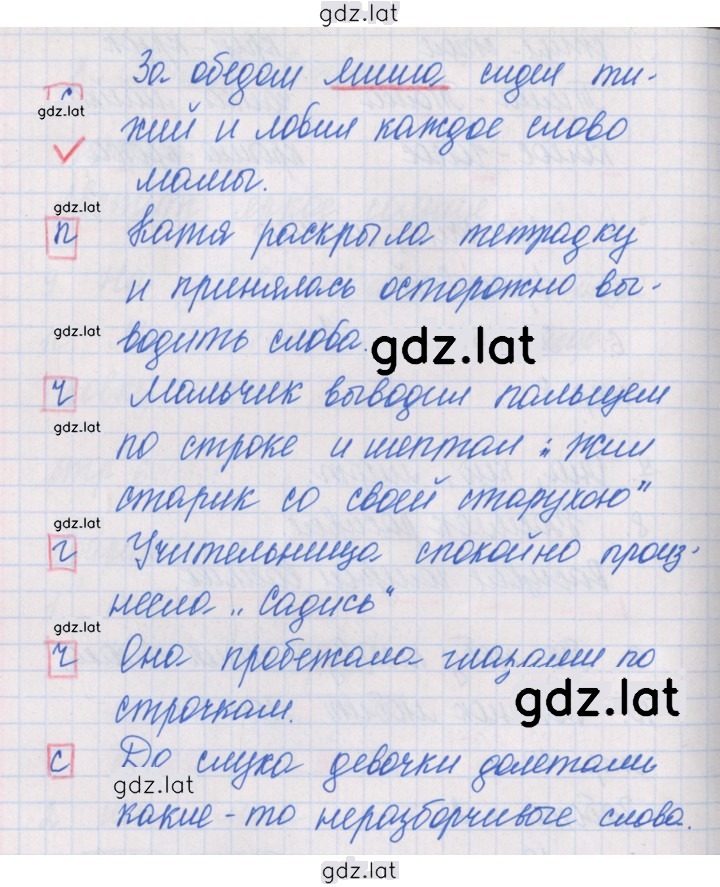 gdz.lat
За обедом Миша сидел ти-
с
gdz.lat
хий и ловил каждое слово
мамы.
gdz.lat
п Катя раскрыла тетрадку
и принялась осторожно вы-
gdz.lat
водить слова. gdz.lat
ч Мальчик выводил пальцем
gdz.lat
по строке и шептал: „Жил
старик со своей старухою"
gdz.lat
г Учительница спокойно произ-
несла „Садись"
gdz.lat
ч Она пробежала глазами по
строчкам. gdz.lat
с До слуха девочки долетали
gdz.lat
какие-то неразборчивые слова.
gdz.lat